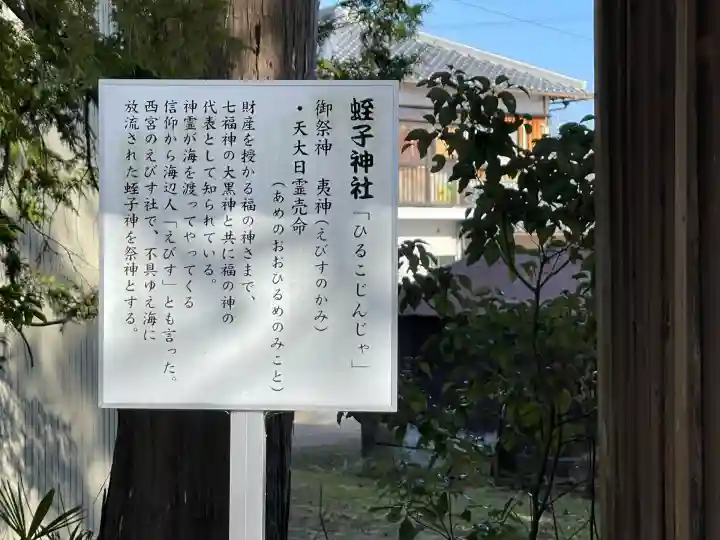 蛭子神社「ひるこじんじゃ」
御祭神　夷神（えびすのかみ）
・天大日霊売命
（あめのおおひるめのみこと）
財産を授かる福の神さまで、
七福神の大黒神と共に福の神の
代表として知られている。
神霊が海を渡ってやってくる
信仰から海辺人「えびす」とも言った。
西宮のえびす社で、不具ゆえ海に
放流された蛭子神を祭神とする。